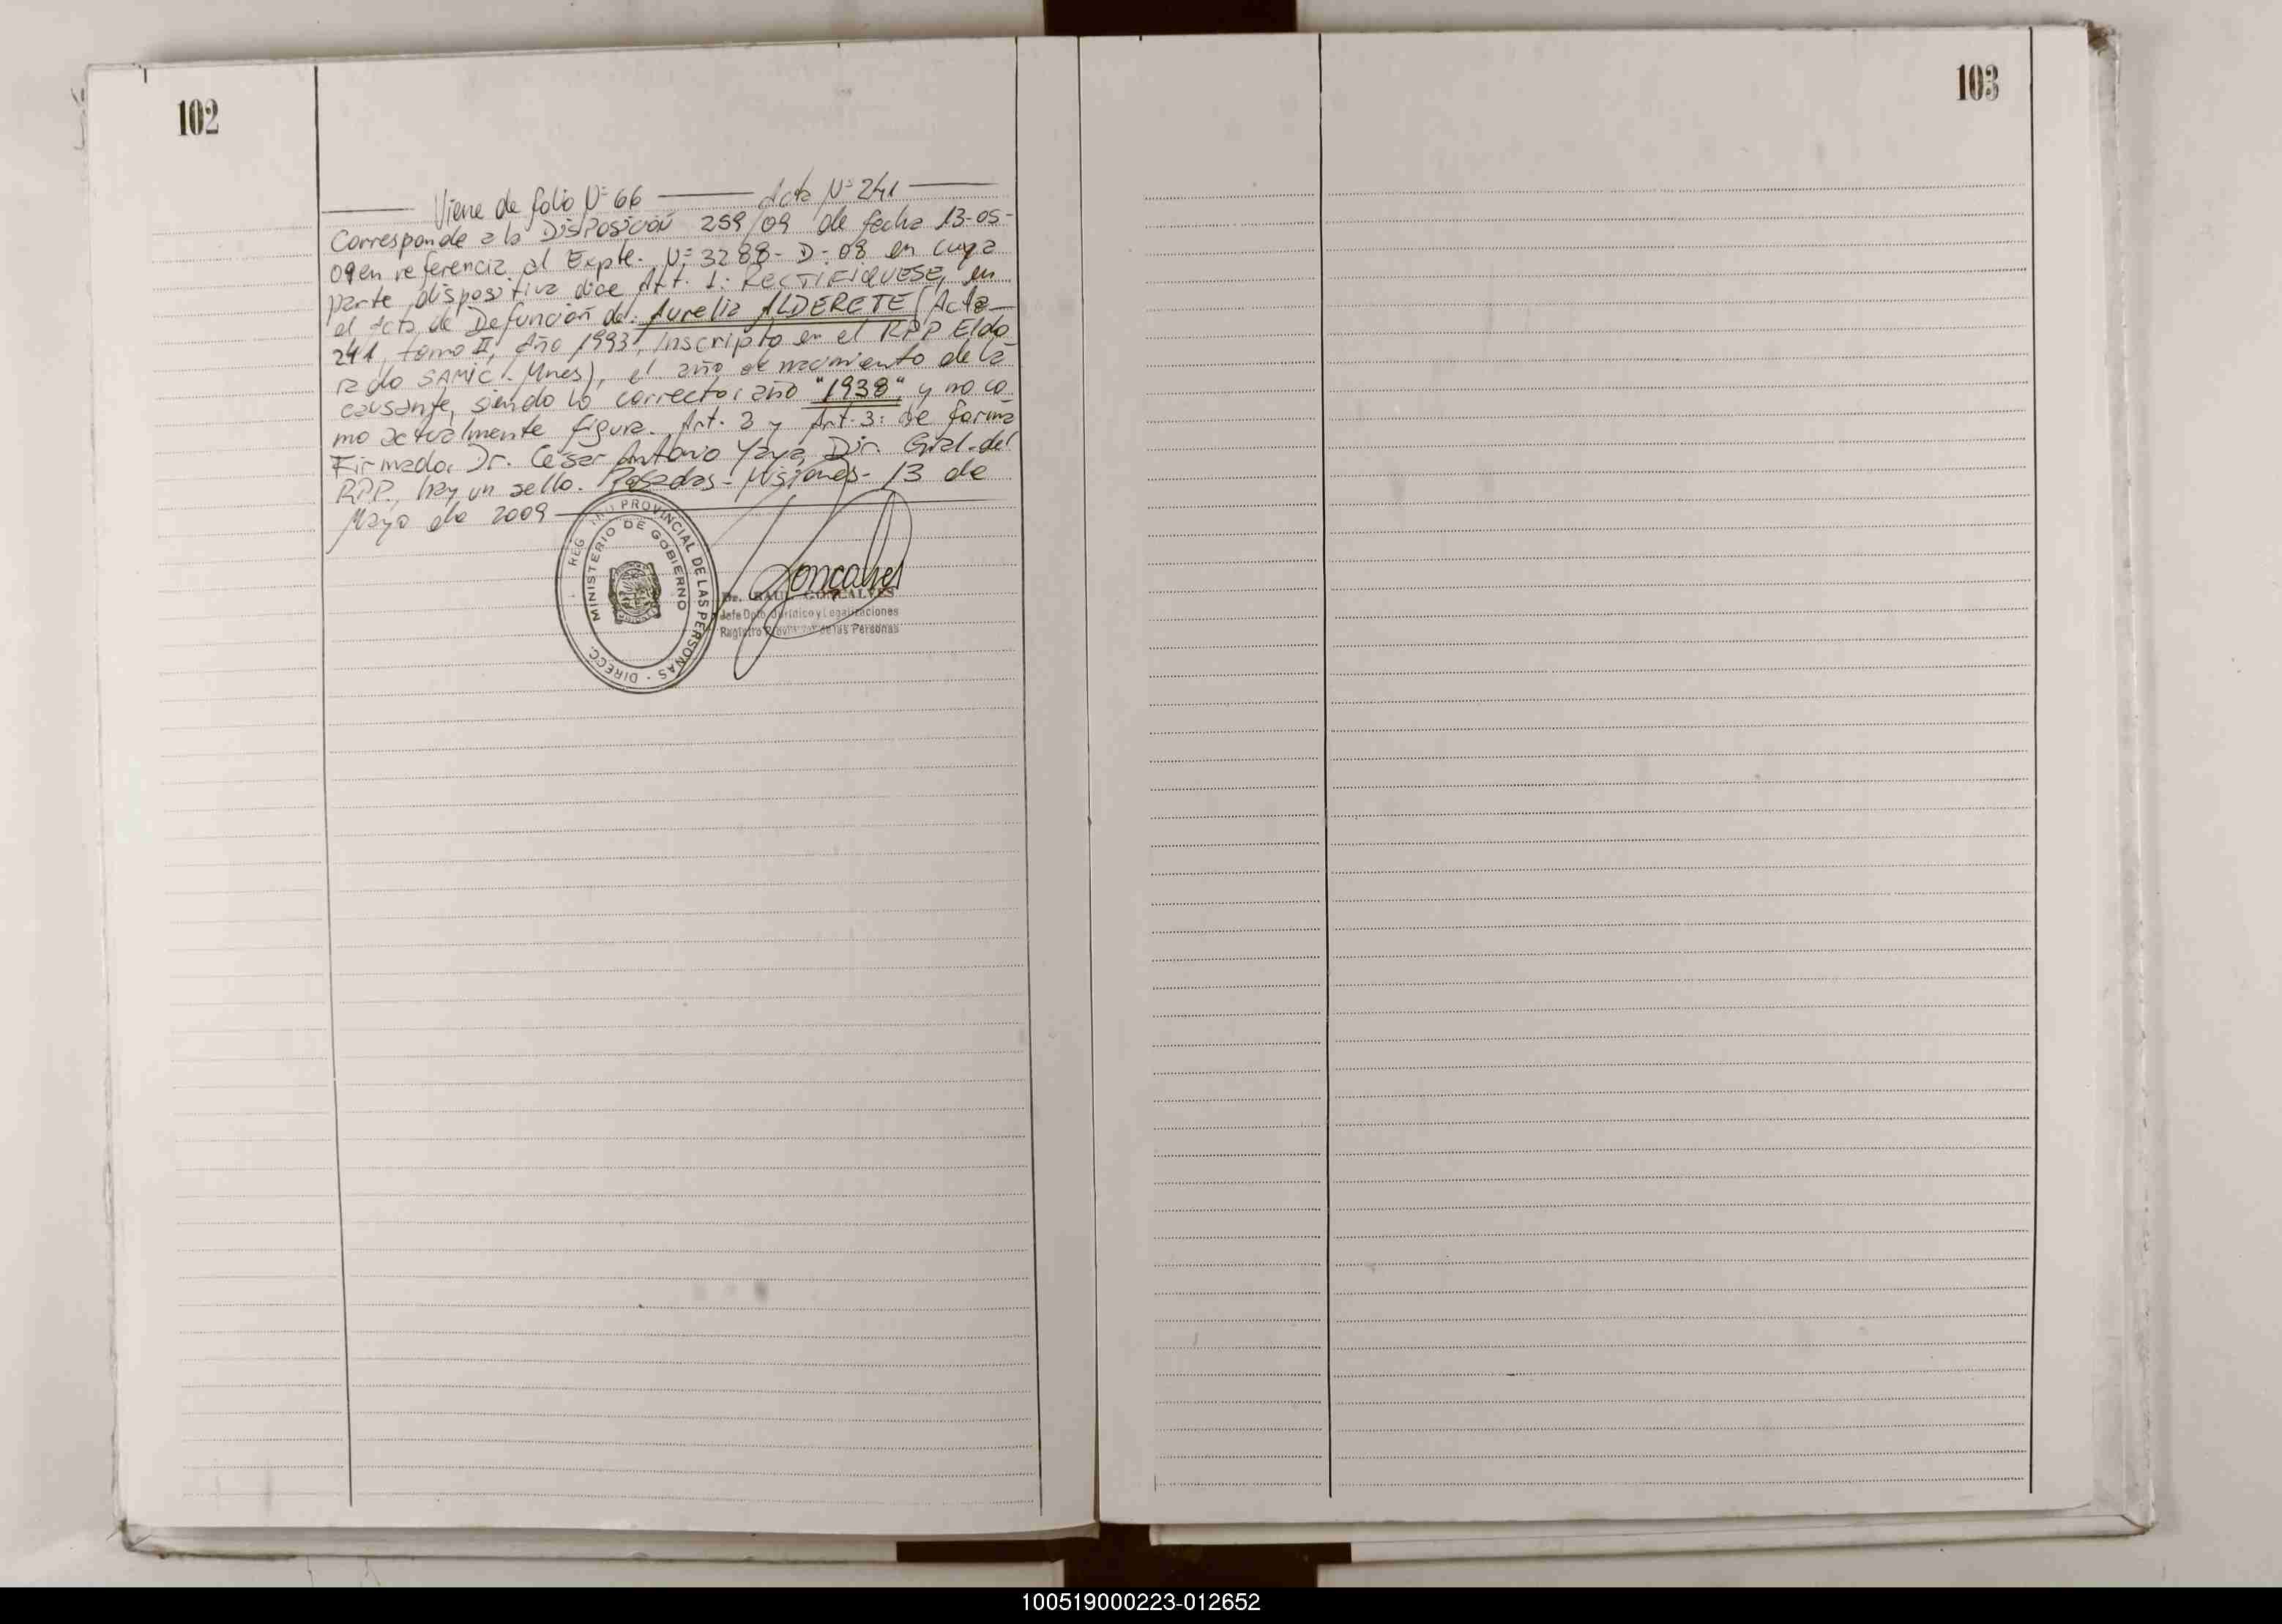 102
Viene de folio Nº 66 Acta Nº 241
Corresponde a la DISPOSICIÓN 259/09 de fecha 13-05-
09 en referencia al Expte. Nº 3288-D-08 en cuya
parte dispositiva dice Art. 1: RECTIFIQUESE, en
el Acta de Defunción de: Aurelia ALDERETE (Acta
241, tomo II, Año 1993, Inscripto en el RPP Eldo
rado SAMIC - Mnes), el año de nacimiento de la
causante, siendo lo correcto: año "1938" y no co
mo actualmente figura. Art. 2 y Art. 3: de forma
Firmado. Dr. César Antonio Yaya, Dir. Gral. del
RPP., hay un sello. Posadas - Misiones - 13 de
Mayo de 2009
REG PROVINCIAL DE LAS PERSONAS - DIRECC.
MINISTERIO DE GOBIERNO
Gonçalves
Dr. RAUL GONÇALVES
Jefe Dpto. Jurídico y Legalizaciones
Registro Provincial de las Personas
103
100519000223-012652